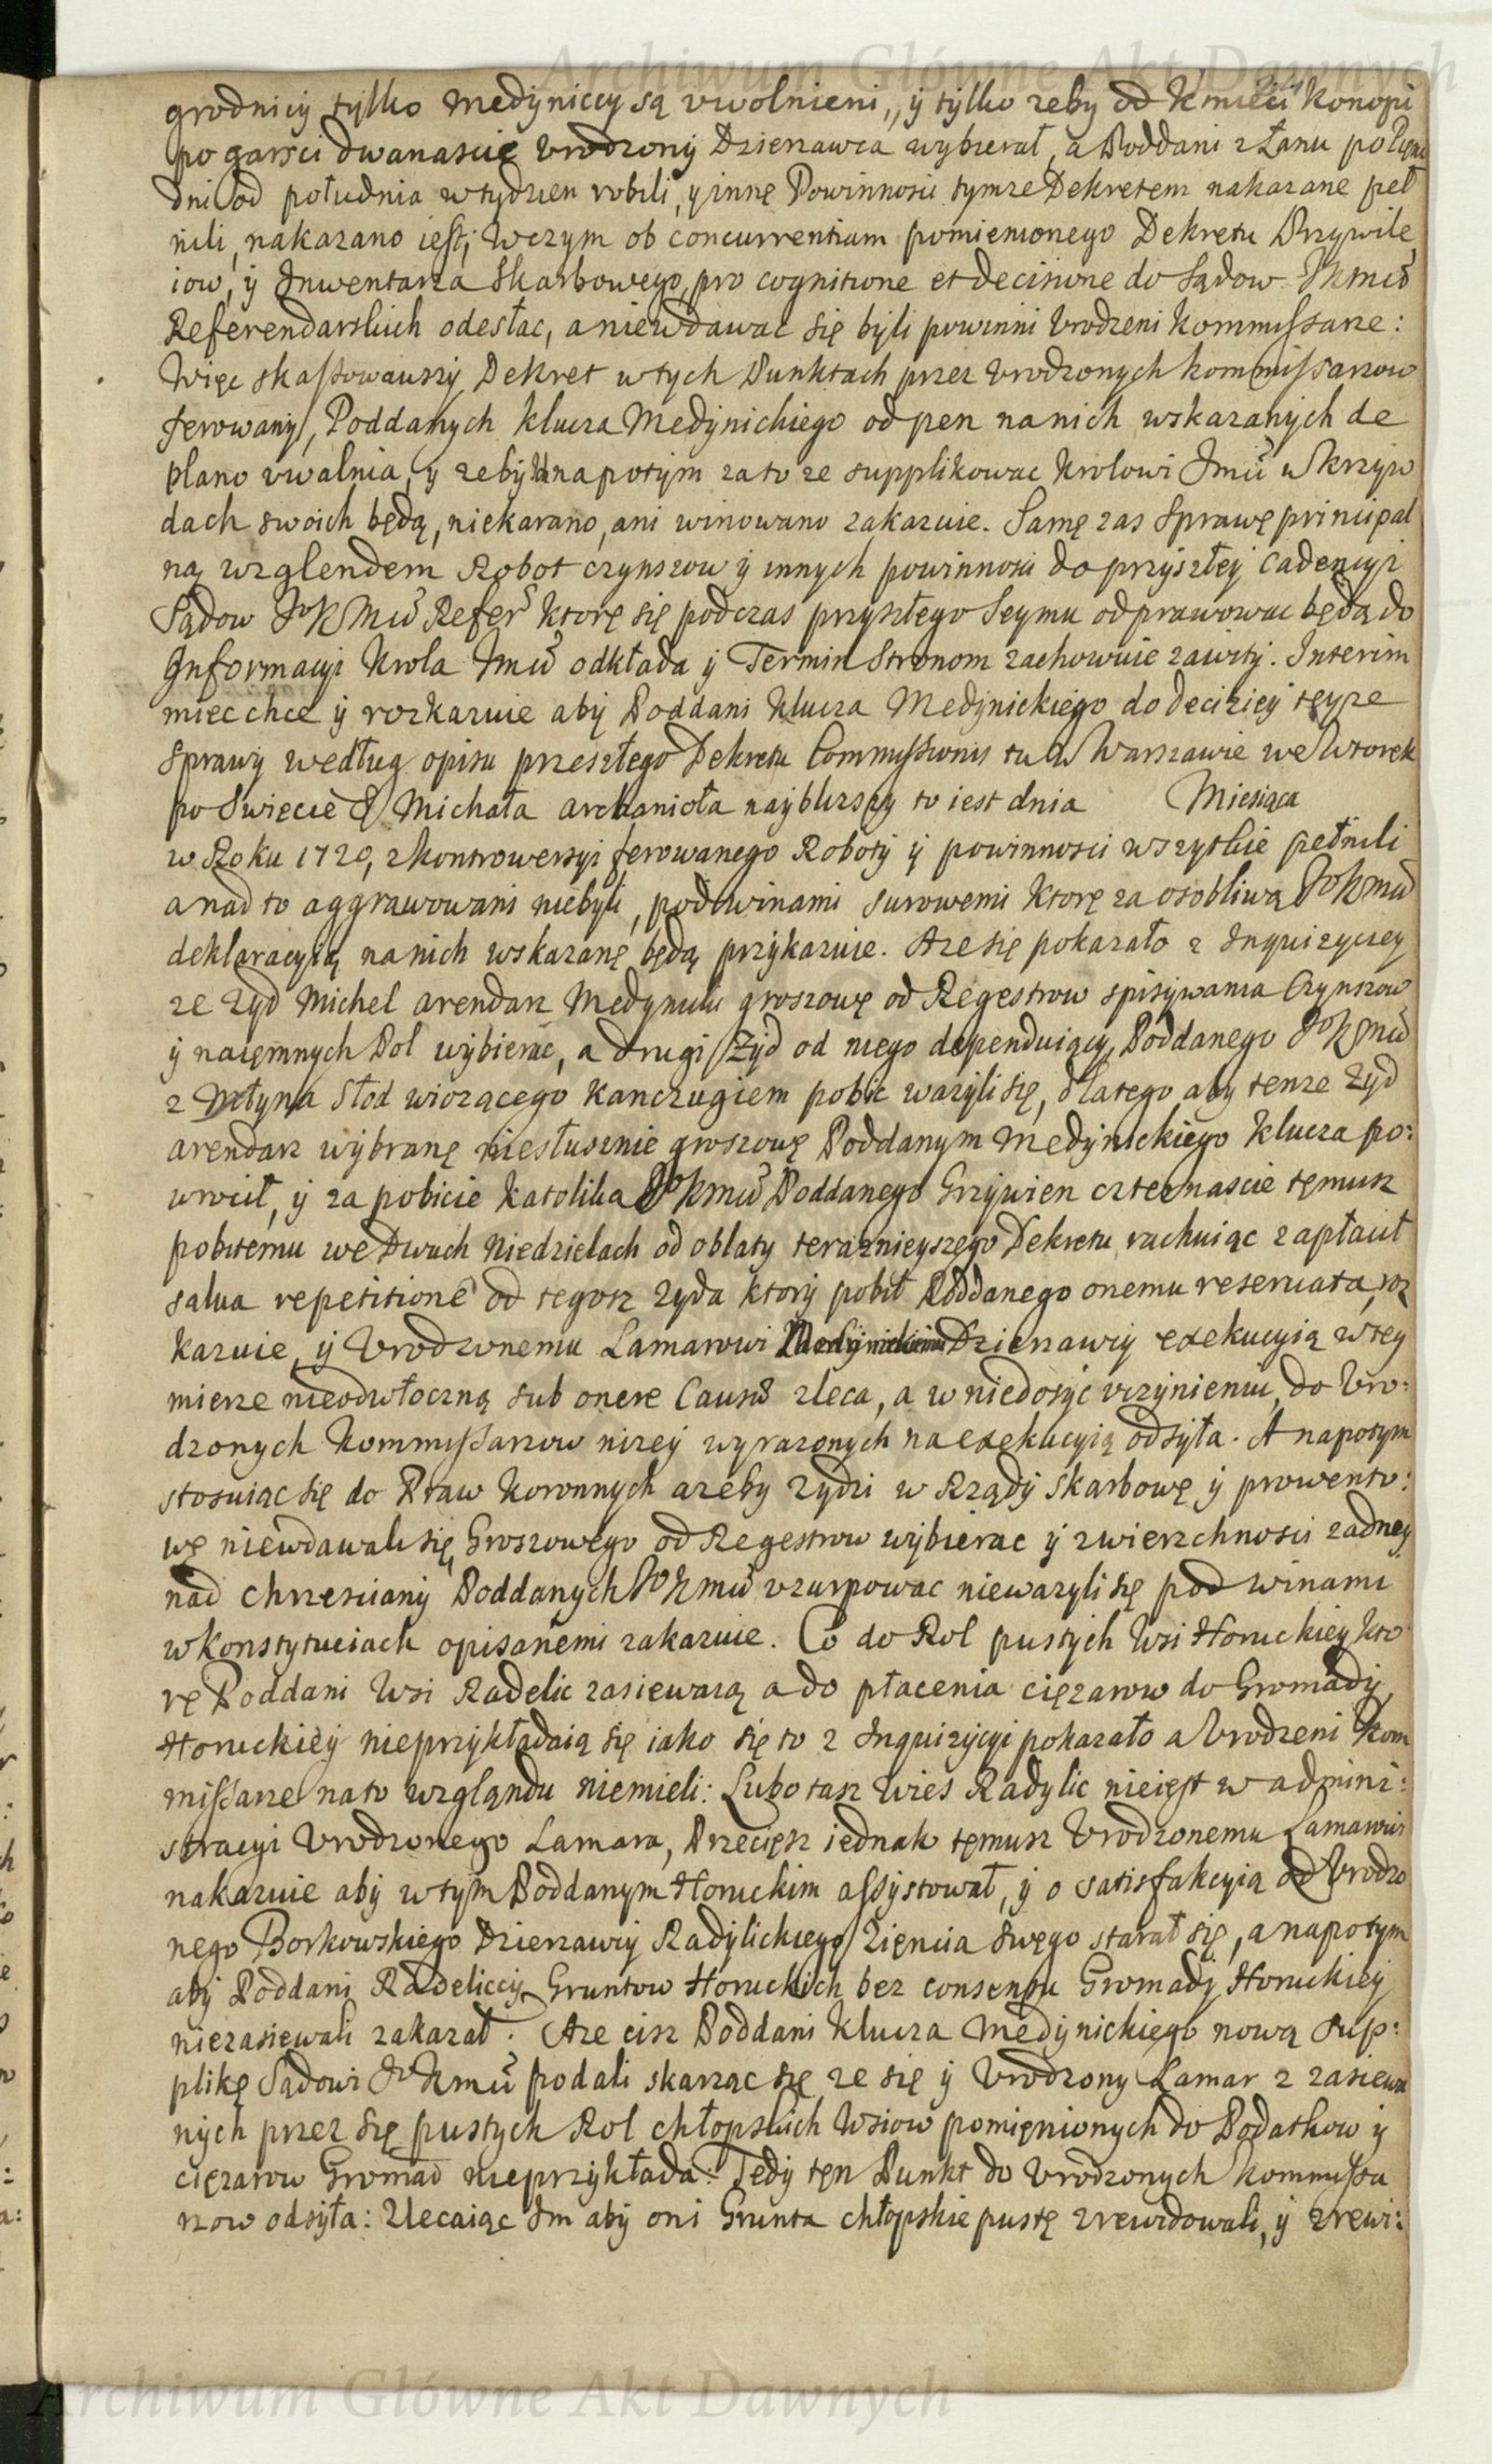 Archiwum Główne Akt Dawnych
grodnicy tylko Medyniccy są vwolnieni, y tylko zeby od Kmieci Konopi
po garsci dwanascie Vrodzony Dzierzawca wybierał, a Poddani z Łanu po
dni od południa w tydzien robili, y innę Powinnosci tymze Dekretem nakazane peł
nili, nakazano iest; Wczym ob concurrentiam pomienionego Dekretu Przywile
iow, y Inwentarza Skarbowego, pro cognitione et decisione do Sądow JKMci
Referendarskich odesłac, a niewdawac się byli powinni Vrodzeni Kommissarze:
Więc skassowawszy Dekret w tych Punktach przez Vrodzonych Kommissarzow
ferowany, Poddanych klucza Medynickiego od pen na nich wskazanych de
plano vwalnia, y zeby na potym za to ze supplikowac Krolowi Jmci w Krzyw
dach swoich będą, niekarano, ani winowano zakazuie. Samę zas Sprawę principal
ną wzglendem Robot czynszow y innych powinnosci do przyszłey Cadencyi
Sądow JoKMci Refer ktorę się podczas przyszłego Seymu odprawowac będą do
Informacyi Krola Jmci odkłada y Termin Stronom zachowuie zawity. Interim
miec chce y rozkazuie aby Poddani Klucza Medynickiego do decizięy teyze
Sprawy według opisu przeszłego Dekretu Commissionis tu w Warszawie we Wtorek
po Swięcie S Michała Archanioła nayblizszy to iest dnia Miesiąca
w Roku 1720, z kontrowersyi ferowanego Roboty y powinnosci wszytkie pełnili
a nad to aggrawowani niebyli, pod winami surowemi ktorę za osobliwą JoKMci
deklaracyią na nich wskazanę będą przykazuie. A ze się pokazało z Inquizyciey
ze Zyd Michel arendarz Medynicki groszowę od Regestrow spisywania Czynszow
y naięmnych Pol wybierac, a drugi Zyd od niego dependuiący, Poddanego JoKMci
z Młyna Słod wiozącego Kanczugiem pobic wazyli się, dlatego aby tenze Zyd
arendarz wybranę niesłusznie groszowę Poddanym Medynickiego Klucza po:
wrocił, y za pobicie Katolika JoKMci Poddanego Grzywien czternascie tęmusz
pobitemu we Dwuch Niedzielach od oblaty teraznieyszego Dekretu rachuiąc zapłacił
salva repetitione od tegosz Zyda ktory pobił Poddanego onemu reservata, roz
kazuie, y Vrodzonemu Lamarowi Dzierzawcy exekucyią w tey
mierze nieodwłoczną sub onere Causæ zleca, a w niedosyc vczynieniu, do Vro:
dzonych Kommissarzow nizey wyrazonych na exekucyią odsyła. A napotym
stosuiąc się do Praw Koronnych azeby Zydzi w Rządy Skarbowę y prowento:
wę niewdawali się, Groszowego od Regestrow wybierac y zwierzchnosci zadney
nad chrzesciany Poddanych JoKMci vzurpowac niewazyli się pod winami
w Konstytuciach opisanemi zakazuie. Co do Rol pustych Wsi Horuckiey kto
rę Poddani Wsi Radelic zasiewaią a do płacenia cięzarow do Gromady
Horuckiey nieprzykładaią się iako się to z Inquizycyi pokazało a Vrodzeni Kom
missarze na to wzglądu niemieli: Lubo tasz Wies Radylic nieięst w admini:
stracyi Vrodzonego Lamara, Przecięsz iednak tęmusz Vrodzonemu Lamarowi
nakazuie aby w tym Poddanym Horuckim assystował, y o satisfakcyią od Vrodzo
nego Borkowskiego Dzierzawcy Radylickiego Zięncia swęgo starał się, a napotym
aby Poddani Radeliccy Gruntow Horuckich bez consensu Gromady Horuckiey
niezasiewali zakazał. A ze cisz Poddani Klucza Medynickiego nową sup:
plikę Sądowi JoKMci podali skarząc się ze się y Vrodzony Lamar z zasiewa
nych przez się pustych Rol chłopskich Wsiow pomięnionych do Podatkow y
cięzarow Gromad nieprzykłada: Tedy tęn Punkt do Vrodzonych Kommissa
rzow odsyła: Zlecaiąc Im aby oni Grunta chłopskie pustę zrewidowali, y zrewi:
Archiwum Główne Akt Dawnych